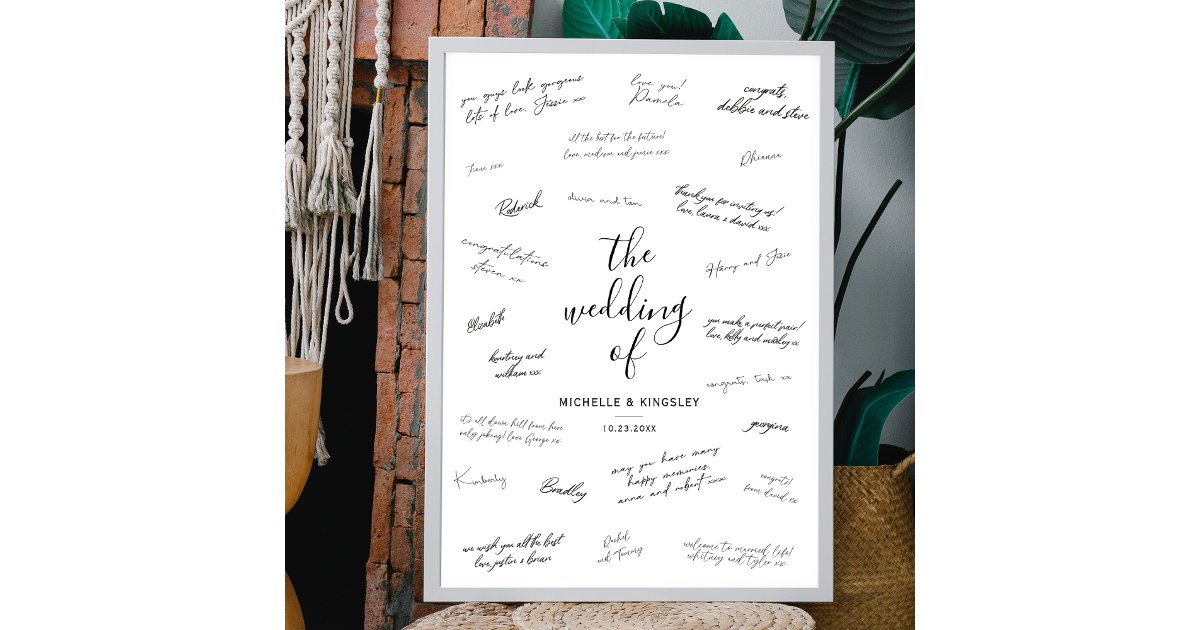 you guys look gorgeous
lots of love, Jessie xx
love you!
Pamela
congrats,
debbie and steve
all the best for the future!
love, madison and jamie xxx
Irene xxx
Rhianna
Roderick
olivia and tom
thank you for inviting us!
love, laura & david xxx
congratulations
steven xx
the
wedding
of
Harry and Josie
Elizabeth
you make a perfect pair!
love, kelly and morley xx
kourtney and
william xxx
congrats, tash xx
MICHELLE & KINGSLEY
10.23.20XX
it's all down hill from here
only joking! love George xx
georgina
Kimberly
Bradley
may you have many
happy memories,
anna and robert xxx
congrats!
from david xx
we wish you all the best
love, justin & brian
Rachel
and Tommy
welcome to married life!
whitney and tyler xx